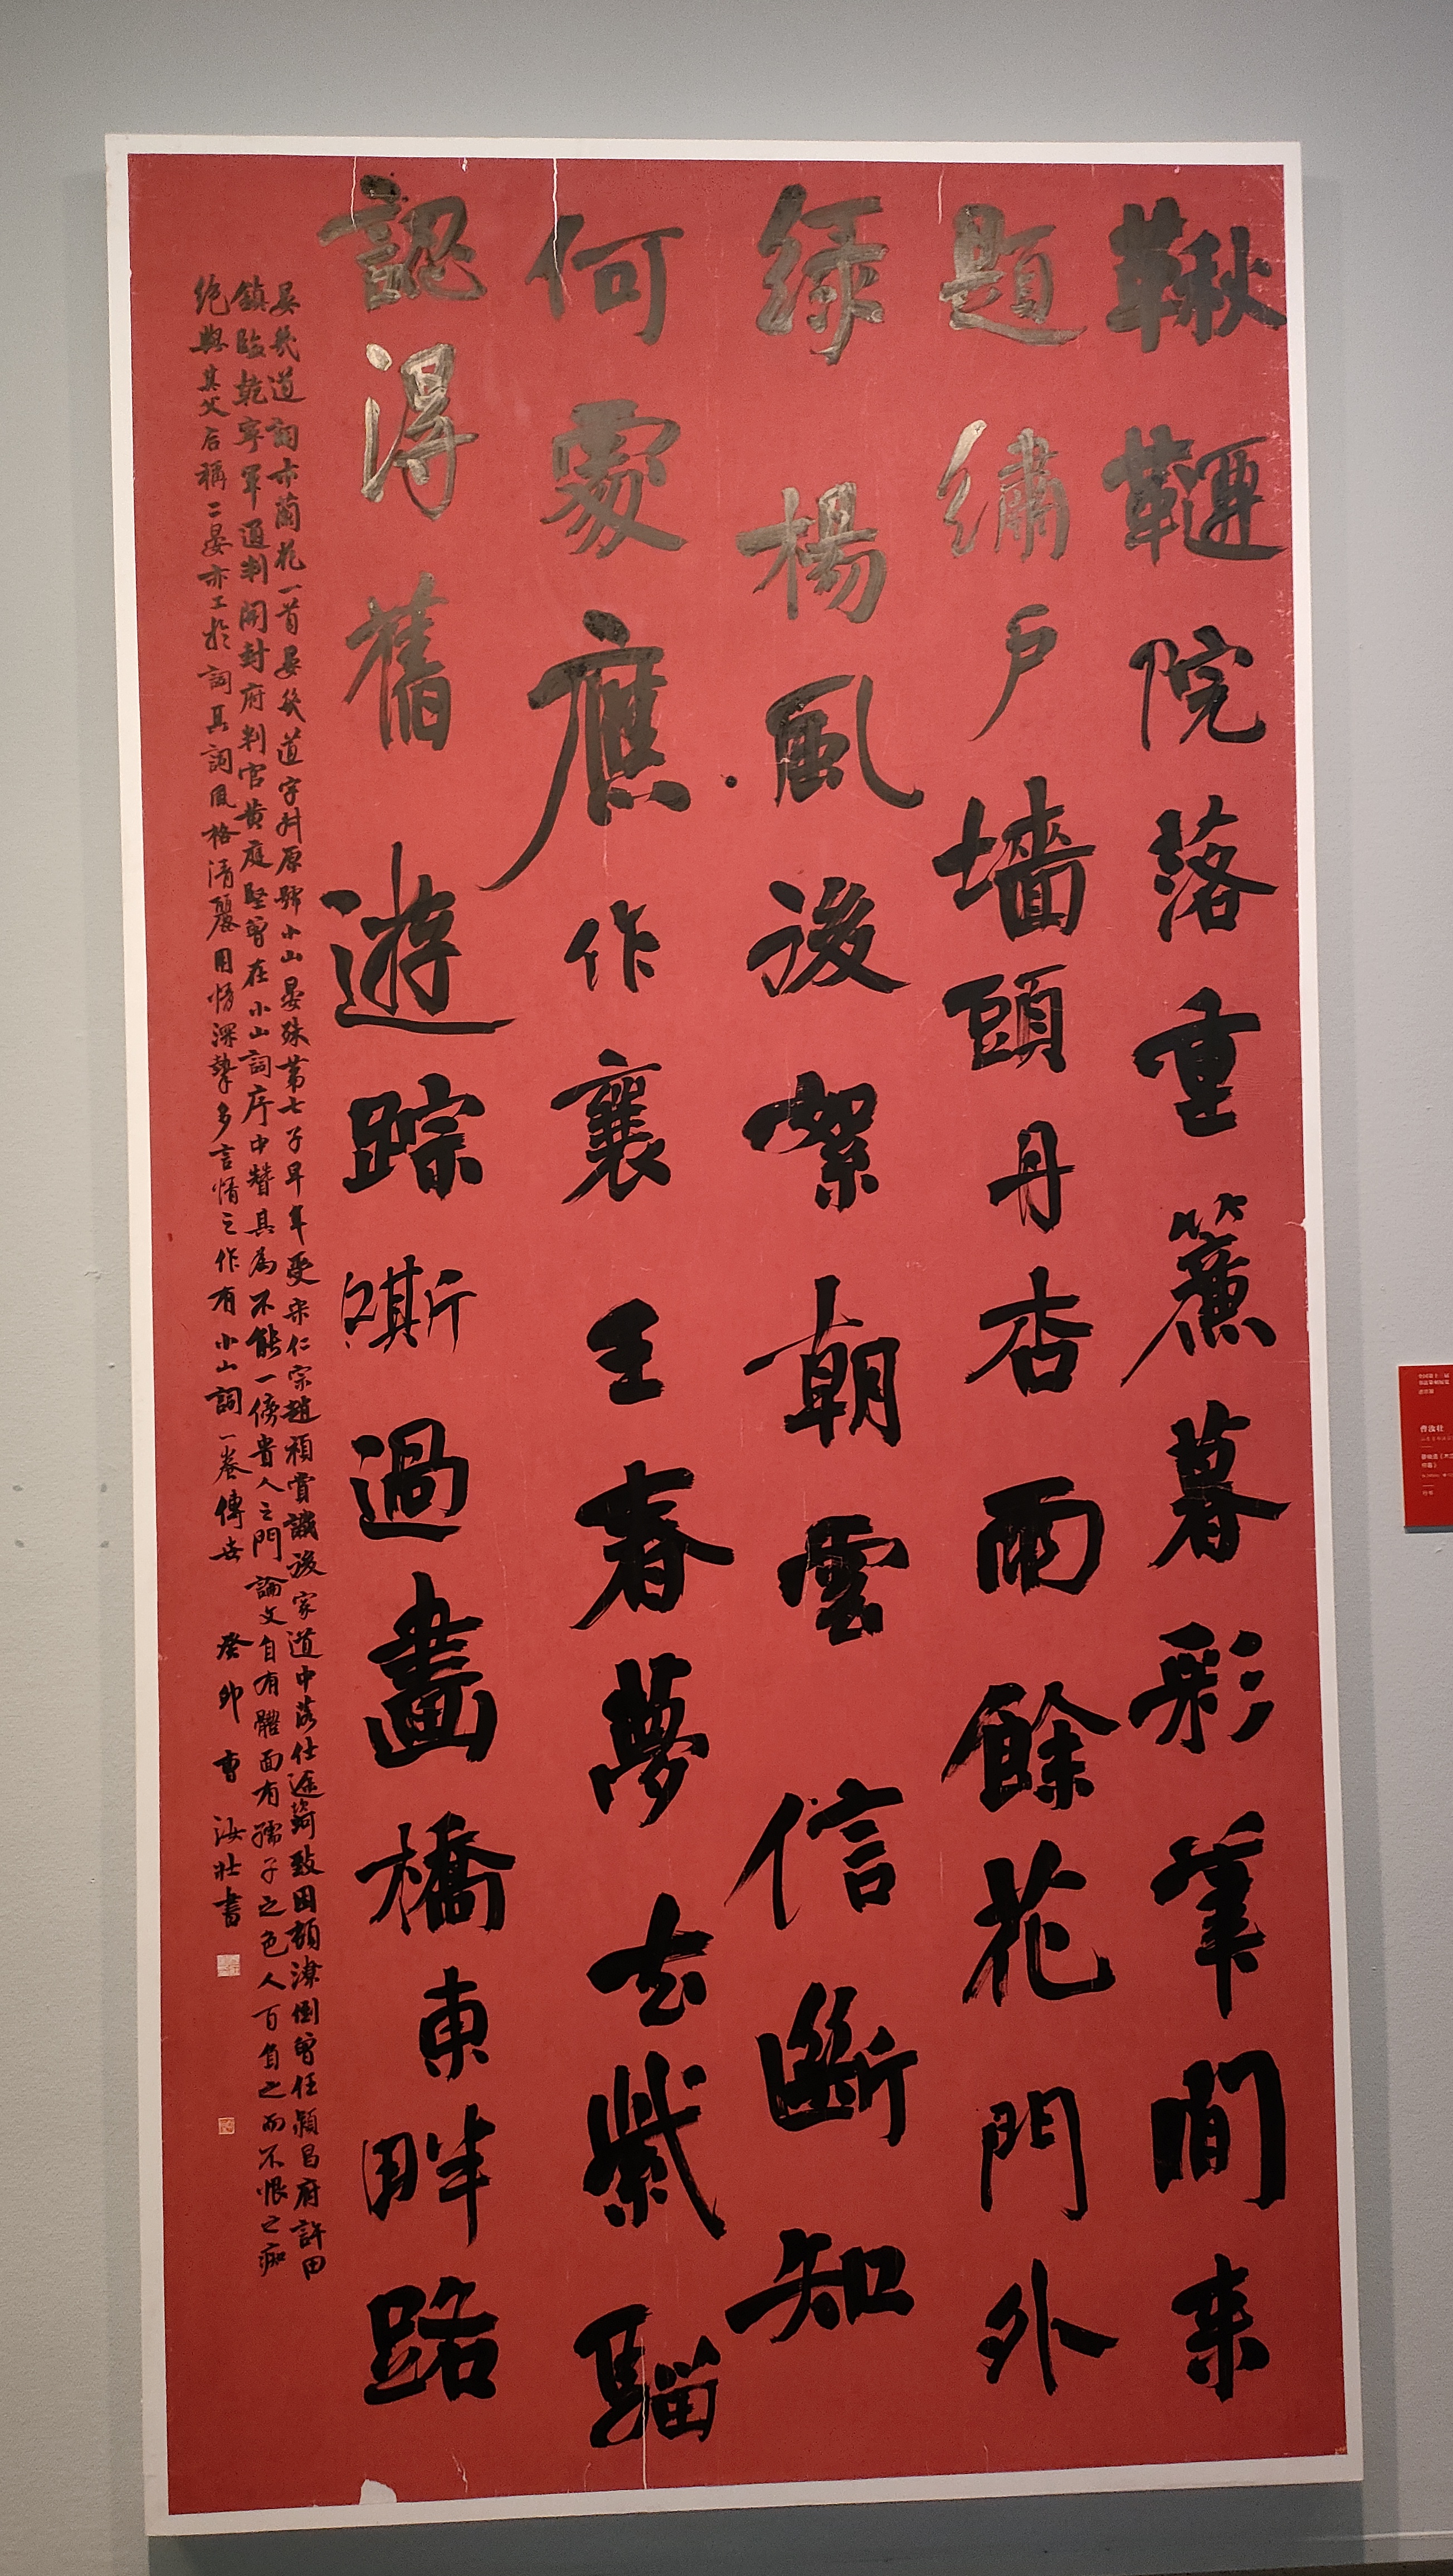 鞦韆院落重簾暮彩筆閒来
題繡户墙頭丹杏雨餘花門外
緑楊風後絮朝雲信斷知
何處應作襄王春夢去紫騮
認得舊遊踪嘶過畫橋東畔路
晏幾道詞亦蘭花一首晏幾道字叔原號小山晏殊第七子早年受宋仁宗趙禎賞識後家道中落仕途踦致困頓潦倒曾任潁昌府許田
鎮臨乾寧軍通判開封府判官黄庭堅曾在小山詞序中贊其為不能一傍貴人之門論文自有體面有孺子之色人百負之而不恨之痴
絶與其父后稱二晏亦工於詞其詞風格清麗用情深摯多言情之作有小山詞一卷傳世 癸卯 曹汝壮書
曹汝壮